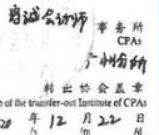 事务所
CPAs
广州分所
转出协会盖章
of the transfer-out Institute of CPAs
年 12 月 22 日
/y /m /d